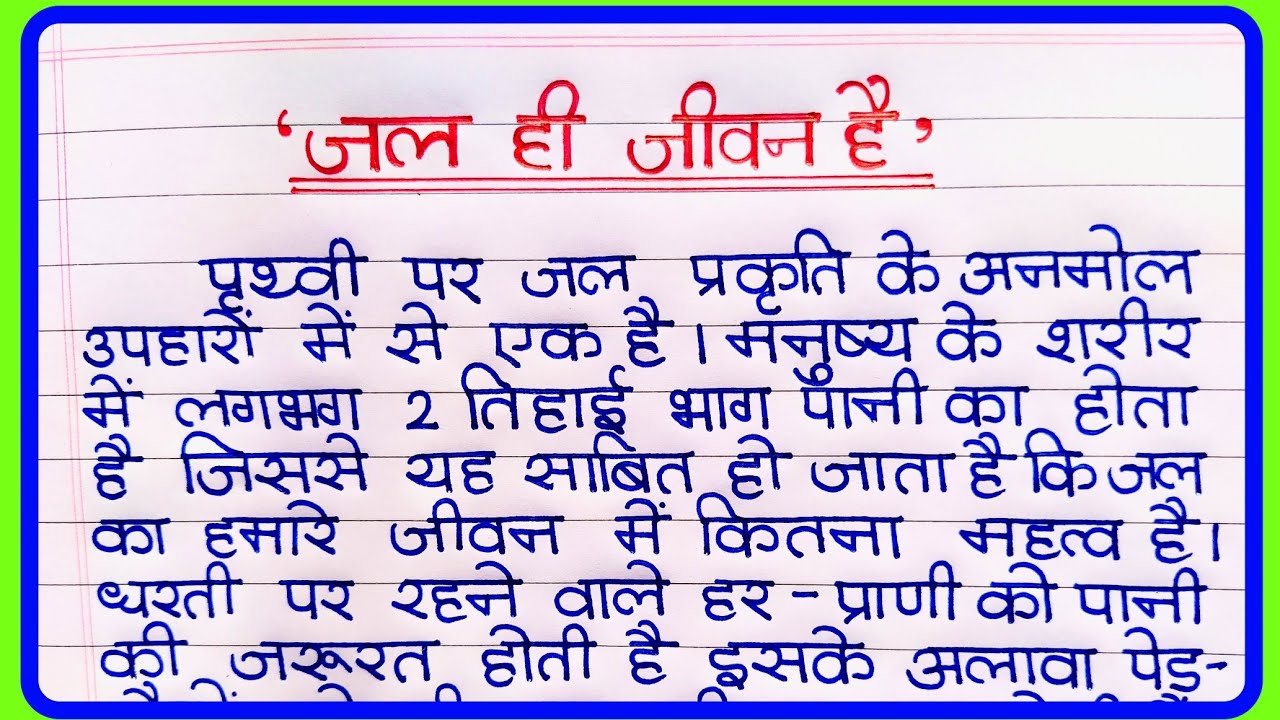 ‘जल ही जीवन है’
पृथ्वी पर जल प्रकृति के अनमोल
उपहारों में से एक है। मनुष्य के शरीर
में लगभग 2 तिहाई भाग पानी का होता
है जिससे यह साबित हो जाता है कि जल
का हमारे जीवन में कितना महत्व है।
धरती पर रहने वाले हर-प्राणी को पानी
की जरूरत होती है इसके अलावा पेड़-